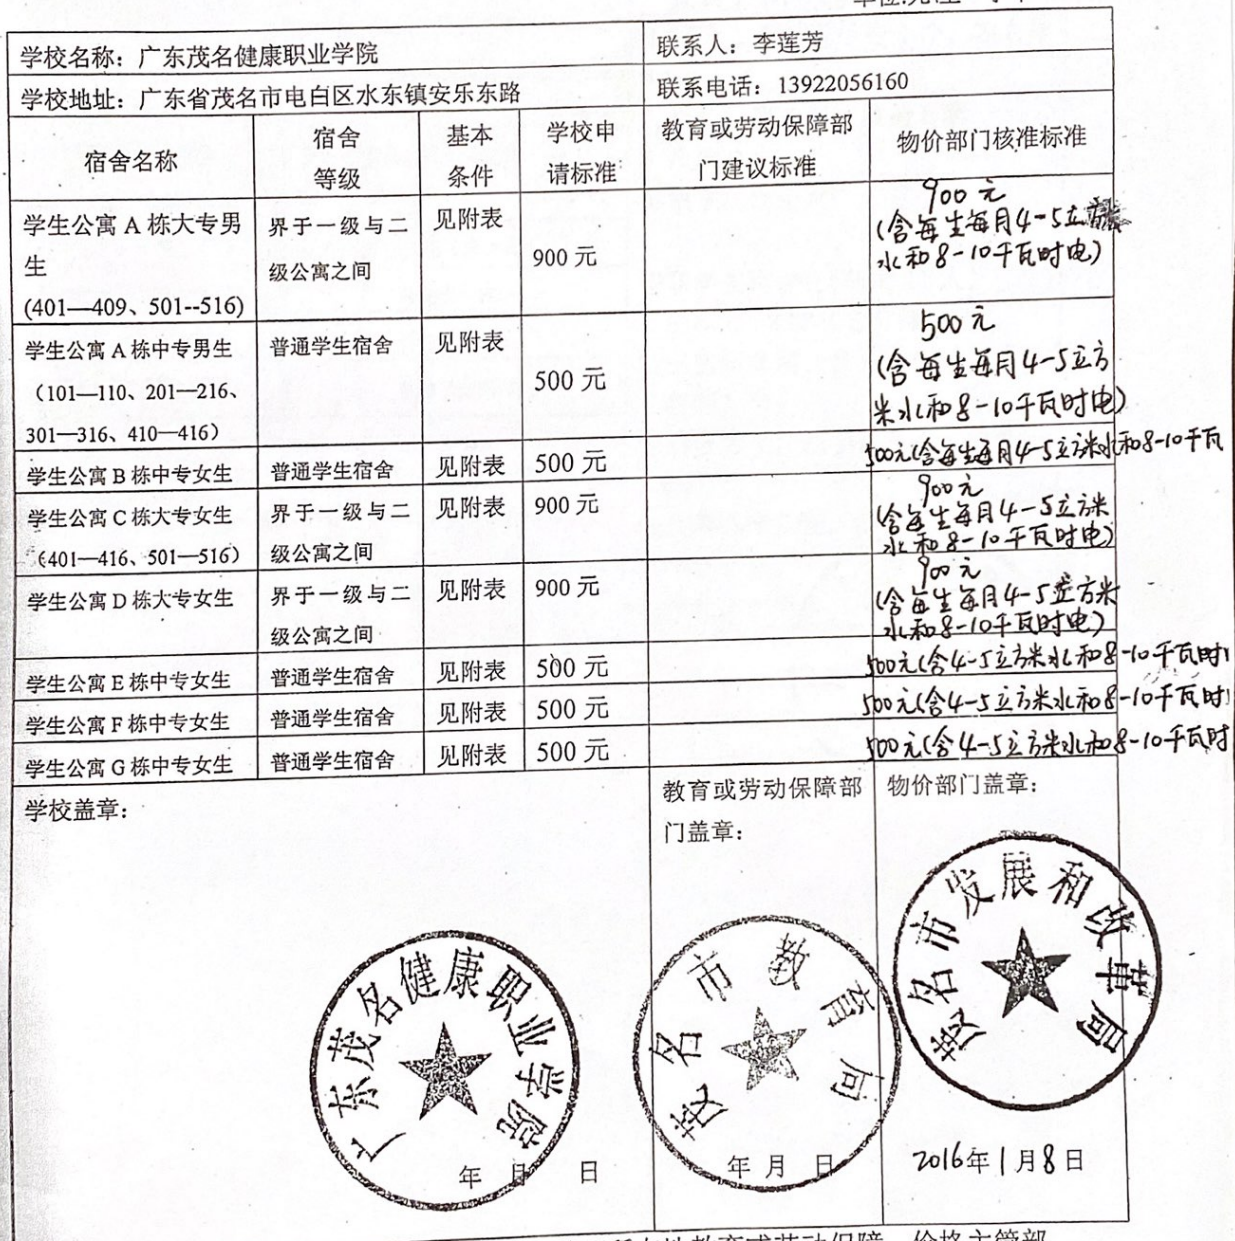 学校名称：广东茂名健康职业学院
联系人：李莲芳
学校地址：广东省茂名市电白区水东镇安乐东路
联系电话：13922056160
宿舍名称
宿舍
等级
基本
条件
学校申
请标准
教育或劳动保障部
门建议标准
物价部门核准标准
学生公寓 A 栋大专男
生
(401—409、501--516)
界于一级与二
级公寓之间
见附表
900 元
900 元
(含每生每月4-5立
水和8-10千瓦时电)
学生公寓 A 栋中专男生
（101—110、201—216、
301—316、410—416）
普通学生宿舍
见附表
500 元
500 元
(含每生每月4-5立方
米水和8-10千瓦时电)
学生公寓 B 栋中专女生
普通学生宿舍
见附表
500 元
500元(含每生每月4-5立方米水和8-10千瓦
学生公寓 C 栋大专女生
（401—416、501—516）
界于一级与二
级公寓之间
见附表
900 元
900元
(含每生每月4-5立方米
水和8-10千瓦时电)
学生公寓 D 栋大专女生
界于一级与二
级公寓之间
见附表
900 元
900元
(含每生每月4-5立方米
水和8-10千瓦时电)
学生公寓 E 栋中专女生
普通学生宿舍
见附表
500 元
500元(含4-5立方米水和8-10千瓦时
学生公寓 F 栋中专女生
普通学生宿舍
见附表
500 元
500元(含4-5立方米水和8-10千瓦时
学生公寓 G 栋中专女生
普通学生宿舍
见附表
500 元
500元(含4-5立方米水和8-10千瓦时
学校盖章：
教育或劳动保障部
门盖章：
物价部门盖章：
广东茂名健康职业学院
茂名市教育局
茂名市发展和改革局
年 月 日
年 月 日
2016年1月8日